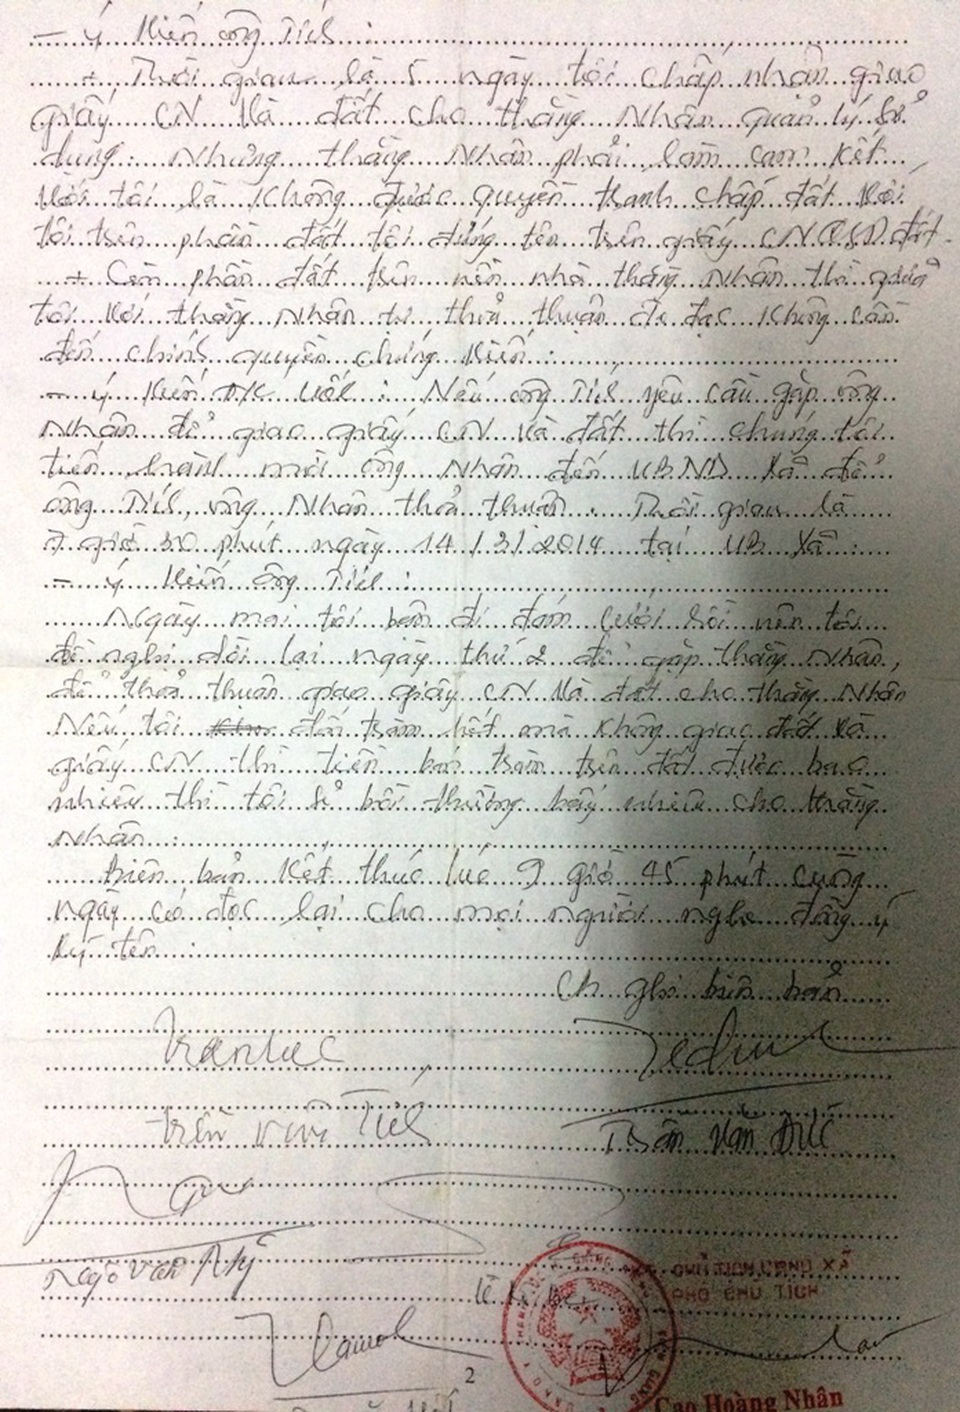 - Ý kiến ông Tích :
+ Thời gian là 5 ngày tôi chấp nhận giao
giấy CN và đất cho thằng Nhân quản lý sử
dụng. Nhưng thằng Nhân phải làm cam kết
với tôi là không được quyền tranh chấp đất với
tôi trên phần đất tôi đứng tên trên giấy CNQSD đất.
+ Còn phần đất trên nền nhà thằng Nhân thì giữa
tôi với thằng Nhân tự thoả thuận đo đạc không cần
đến chính quyền chứng kiến.
- Ý kiến : Nếu ông Tích yêu cầu gặp ông
Nhân để giao giấy CN và đất thì chúng tôi
tiến hành mời ông Nhân đến UBND xã để
ông Tích, ông Nhân thoả thuận. Thời gian là
7 giờ 30 phút ngày 14/3/2014 tại UB xã.
- Ý kiến ông Tích :
Ngày mai tôi bận đi đám cưới hỏi nên tôi
đề nghị dời lại ngày thứ 2 để gặp thằng Nhân,
để thoả thuận giao giấy CN và đất cho thằng Nhân
Nếu tôi đốn tràm hết mà không giao đất và
giấy CN thì tiền bán tràm trên đất được bao
nhiêu thì tôi sẽ bồi thường bấy nhiêu cho thằng
Nhân.
Biên bản kết thúc lúc 9 giờ 45 phút cùng
ngày có đọc lại cho mọi người nghe đồng ý
ký tên.
ghi biên bản
Trần Tích
Trần Văn Đức
Ngô Văn Nhị
Lê
CHỦ TỊCH UBND XÃ
PHÓ CHỦ TỊCH
2
Cao Hoàng Nhân